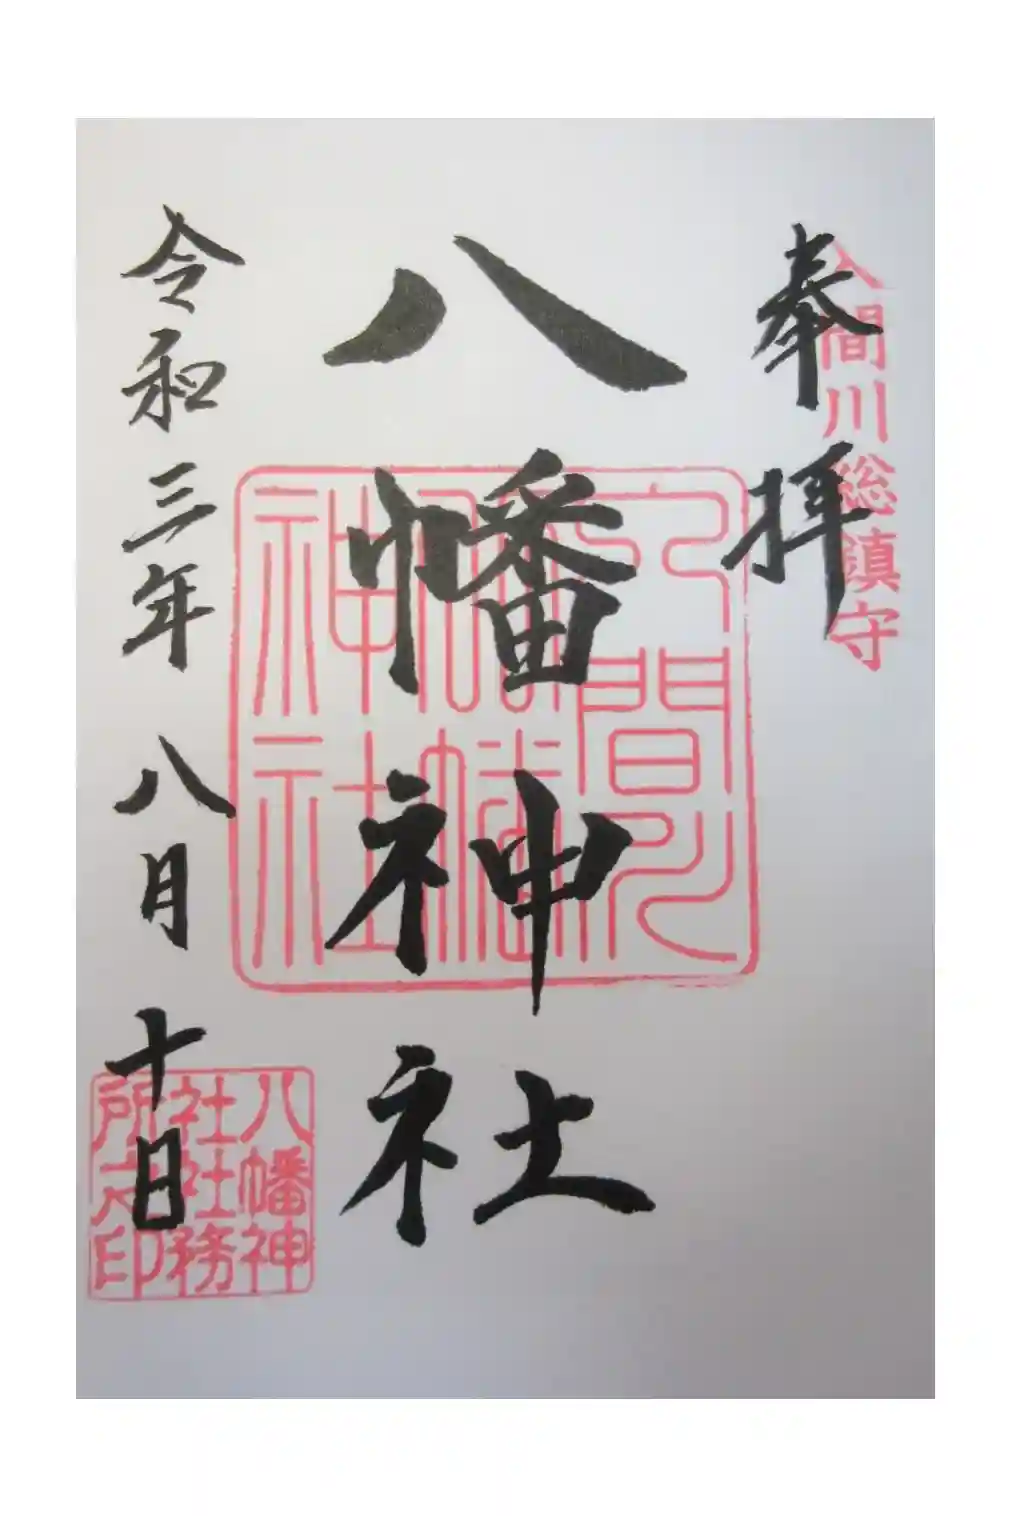 奉拝
入間川総鎮守
八幡神社
令和三年八月十日
八幡神
社社務
所之印